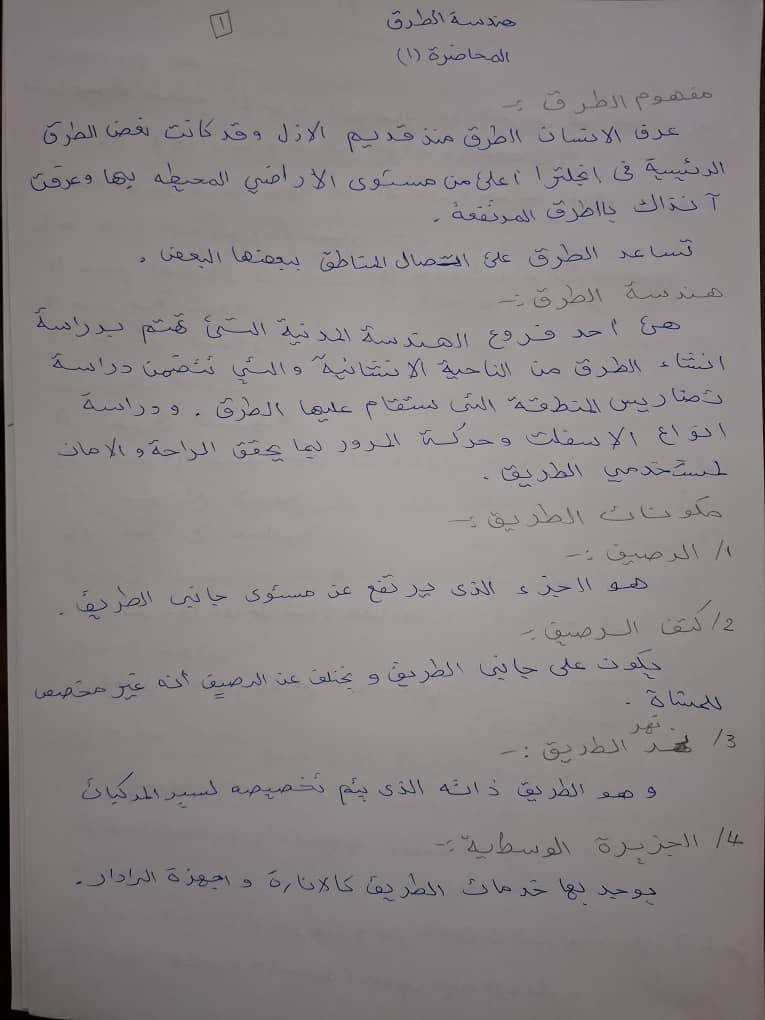 ١
هندسة الطرق
المحاضرة (١)
مفهوم الطرق :-
عرف الانسان الطرق منذ قديم الازل وقد كانت بعض الطرق
الرئيسية في انجلترا اعلى من مستوى الاراضي المحيطه بها وعرفت
آنذاك بالطرق المرتفعة .
تساعد الطرق على اتصال المناطق ببعضها البعض .
هندسة الطرق :-
هى احد فروع الهندسة المدنية التى تهتم بدراسة
انشاء الطرق من الناحية الانشائية والتي تتضمن دراسة
تضاريس المنطقة التى ستقام عليها الطرق . ودراسة
انواع الاسفلت وحركة المرور بما يحقق الراحة والامان
لمستخدمي الطريق .
مكونات الطريق :-
1/ الرصيف :-
هو الجزء الذى يرتفع عن مستوى جانبى الطريق .
2/ كتف الرصيف :-
يكون على جانبى الطريق و يختلف عن الرصيف أنه غير مخصص
للمشاة .
3/ نهر الطريق :-
و هو الطريق ذاته الذى يتم تخصيصه لسير المركبات
4/ الجزيرة الوسطية :-
يوجد بها خدمات الطريق كالانارة و اجهزة الرادار .